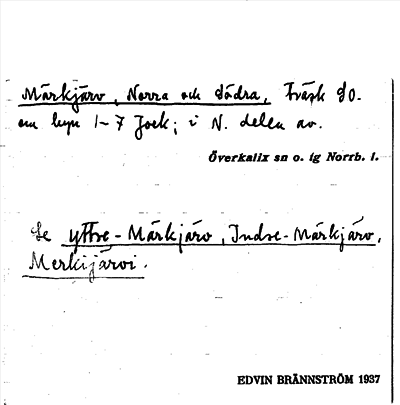 Märkjärv, Norra och Södra, träsk SO.
om byn 1-7 Jock; i N. delen av.
Överkalix sn o. tg Norrb. l.
Se Yttre-Märkjärv, Indre-Märkjärv,
Merkijärvi.
EDVIN BRÄNNSTRÖM 1937